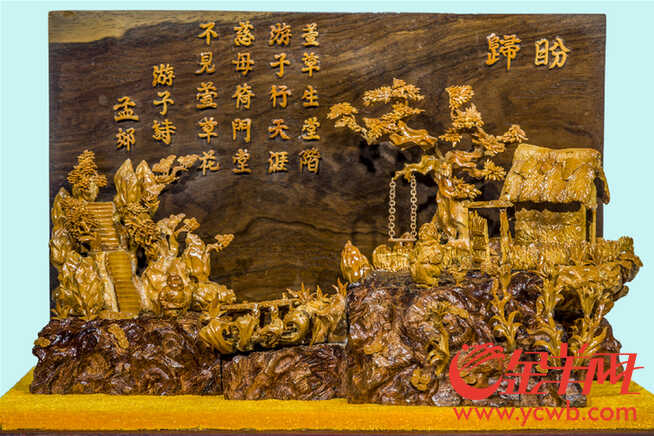 盼歸
萱草生堂階
游子行天涯
慈母倚門堂
不見萱草花
游子詩
孟郊
金羊网
www.ycwb.com